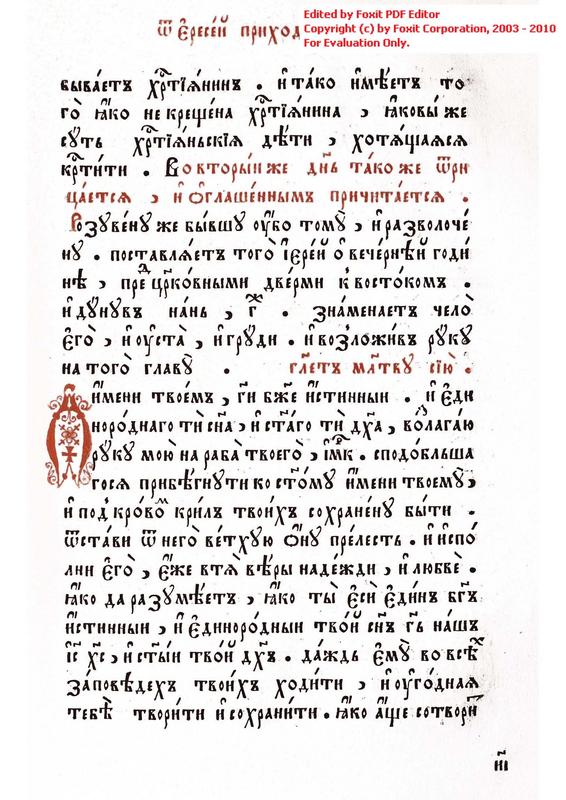 Edited by Foxit PDF Editor
Copyright (c) by Foxit Corporation, 2003 - 2010
For Evaluation Only.
ѿ є҆ресе́й приход
быва́етъ хрⷭ҇тїѧ́нинъ . и҆ та́ко и҆мѣ́етъ то
го̀ ꙗ҆́ко не креще́на хрⷭ҇тїѧ́нина , ꙗ҆ковы́ же
сꙋ́ть хрⷭ҇тїѧ́ньскїѧ дѣ́ти , хотѧ́щаѧсѧ
крⷭ҇ти́ти . Во вторы́и же дн҃ь та́ко же ѿри
ца́етсѧ , и҆ ѡ҆глаше́ннымъ причита́етсѧ .
Розꙋве́нꙋ же бы́вшꙋ ᲂу҆́бо томꙋ̀ , и҆ разволоче́
нꙋ . поставлѧ́етъ того̀ і҆ере́й ѻ҆ вече́рнѣй годи́
нѣ , предⷣ црко́вными две́рми к восто́комъ .
и҆ дꙋ́нꙋвъ на́нь , г҃ⷤ . зна́менаетъ чело̀
є҆го̀ , и҆ ᲂу҆ста̀ , и҆ грꙋ́ди . и҆ возложи́въ рꙋ́кꙋ
на того̀ главꙋ̀ . гл҃етъ мл҃твꙋ сїю̀ .
Ѻ҆ и҆́мени твое́мъ , гд҃и бж҃е и҆́стинныи . и҆ є҆ди
норо́днаго тѝ сн҃а , и҆ ст҃а́го тѝ дх҃а , волага́ю
рꙋ́кꙋ мою̀ на раба̀ твоего̀ , и҆мⷬ҇к . сподо́бльша
госѧ прибѣ́гнꙋти ко ст҃о́мꙋ и҆́мени твоемꙋ̀ ,
и҆ под̾ кро́вомъ кри́лъ твои́хъ сохране́нꙋ бы́ти .
ѿста́ви ѿ него̀ ве́тхꙋю ѻ҆́нꙋ пре́лесть . и҆ и҆спо́
лни є҆го̀ , є҆́же втѧ̀ вѣ́ры наде́жди , и҆ любвѐ .
ꙗ҆́ко да разꙋмѣ́етъ , ꙗ҆́ко ты̀ є҆сѝ є҆ди́нъ бг҃ъ
и҆́стинныи , и҆ є҆диноро́дныи тво́й сн҃ъ гд҃ь на́шъ
і҆с҃ хс҃ , и҆ ст҃ы́и тво́й дх҃ъ . да́ждь є҆мꙋ̀ во всѣ́хъ
за́повѣдехъ твои́хъ ходи́ти , и҆ ᲂу҆го́днаѧ
тебѣ̀ твори́ти и҆ сохрани́ти . ꙗ҆́ко а҆́ще сотвори́т
н҃і